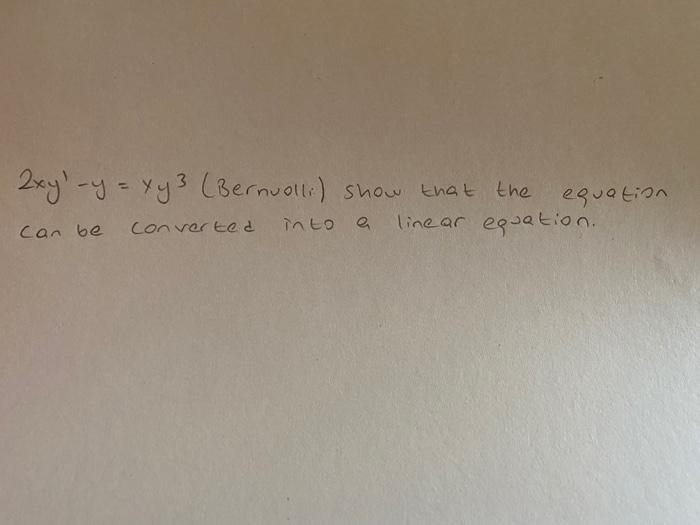 2xy' - y = xy³ (Bernuolli) show that the equation
can be converted into a linear equation.